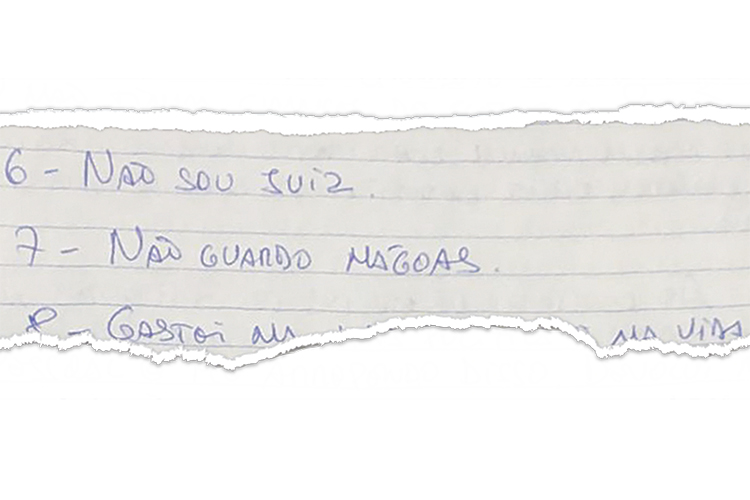 6 - NÃO SOU JUIZ.
7 - NÃO GUARDO MÁGOAS.
8 - GASTEI NA VIDA